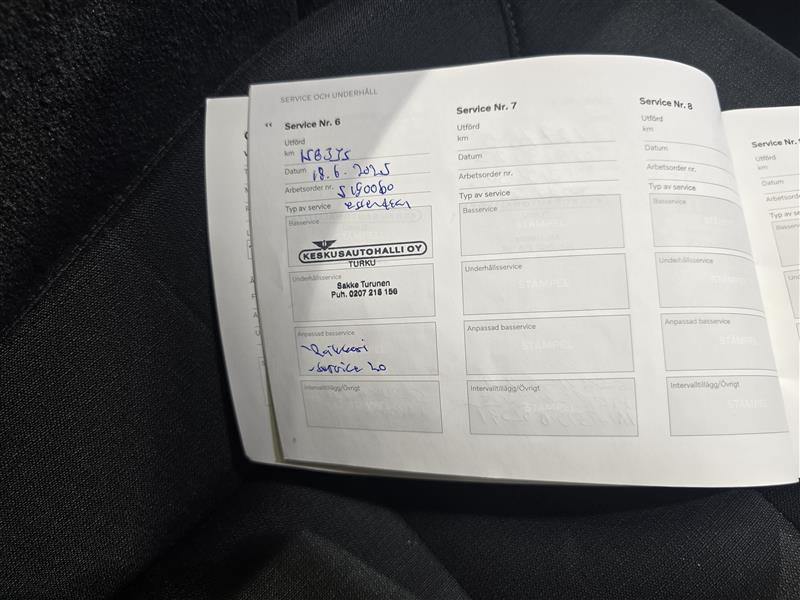 SERVICE OCH UNDERHÅLL
Service Nr. 6
Utförd
km
Datum 18.6.2025
Arbetsorder nr.
Typ av service
Basservice
KESKUSAUTOHALLI OY
TURKU
Underhållsservice
Sakke Turunen
Puh. 0207 218 156
Anpassad basservice
-Service 20
Intervalltillägg/Övrigt
Service Nr. 7
Utförd
km
Datum
Arbetsorder nr.
Typ av service
Basservice
Underhållsservice
STÄMPEL
Anpassad basservice
STÄMPEL
Intervalltillägg/Övrigt
STÄMPEL
Service Nr. 8
Utförd
km
Datum
Arbetsorder nr.
Typ av service
Basservice
STÄMPEL
Underhållsservice
STÄMPEL
Anpassad basservice
STÄMPEL
Intervalltillägg/Övrigt
STÄMPEL
Service Nr.
Utförd
km
Datum
Typ av se